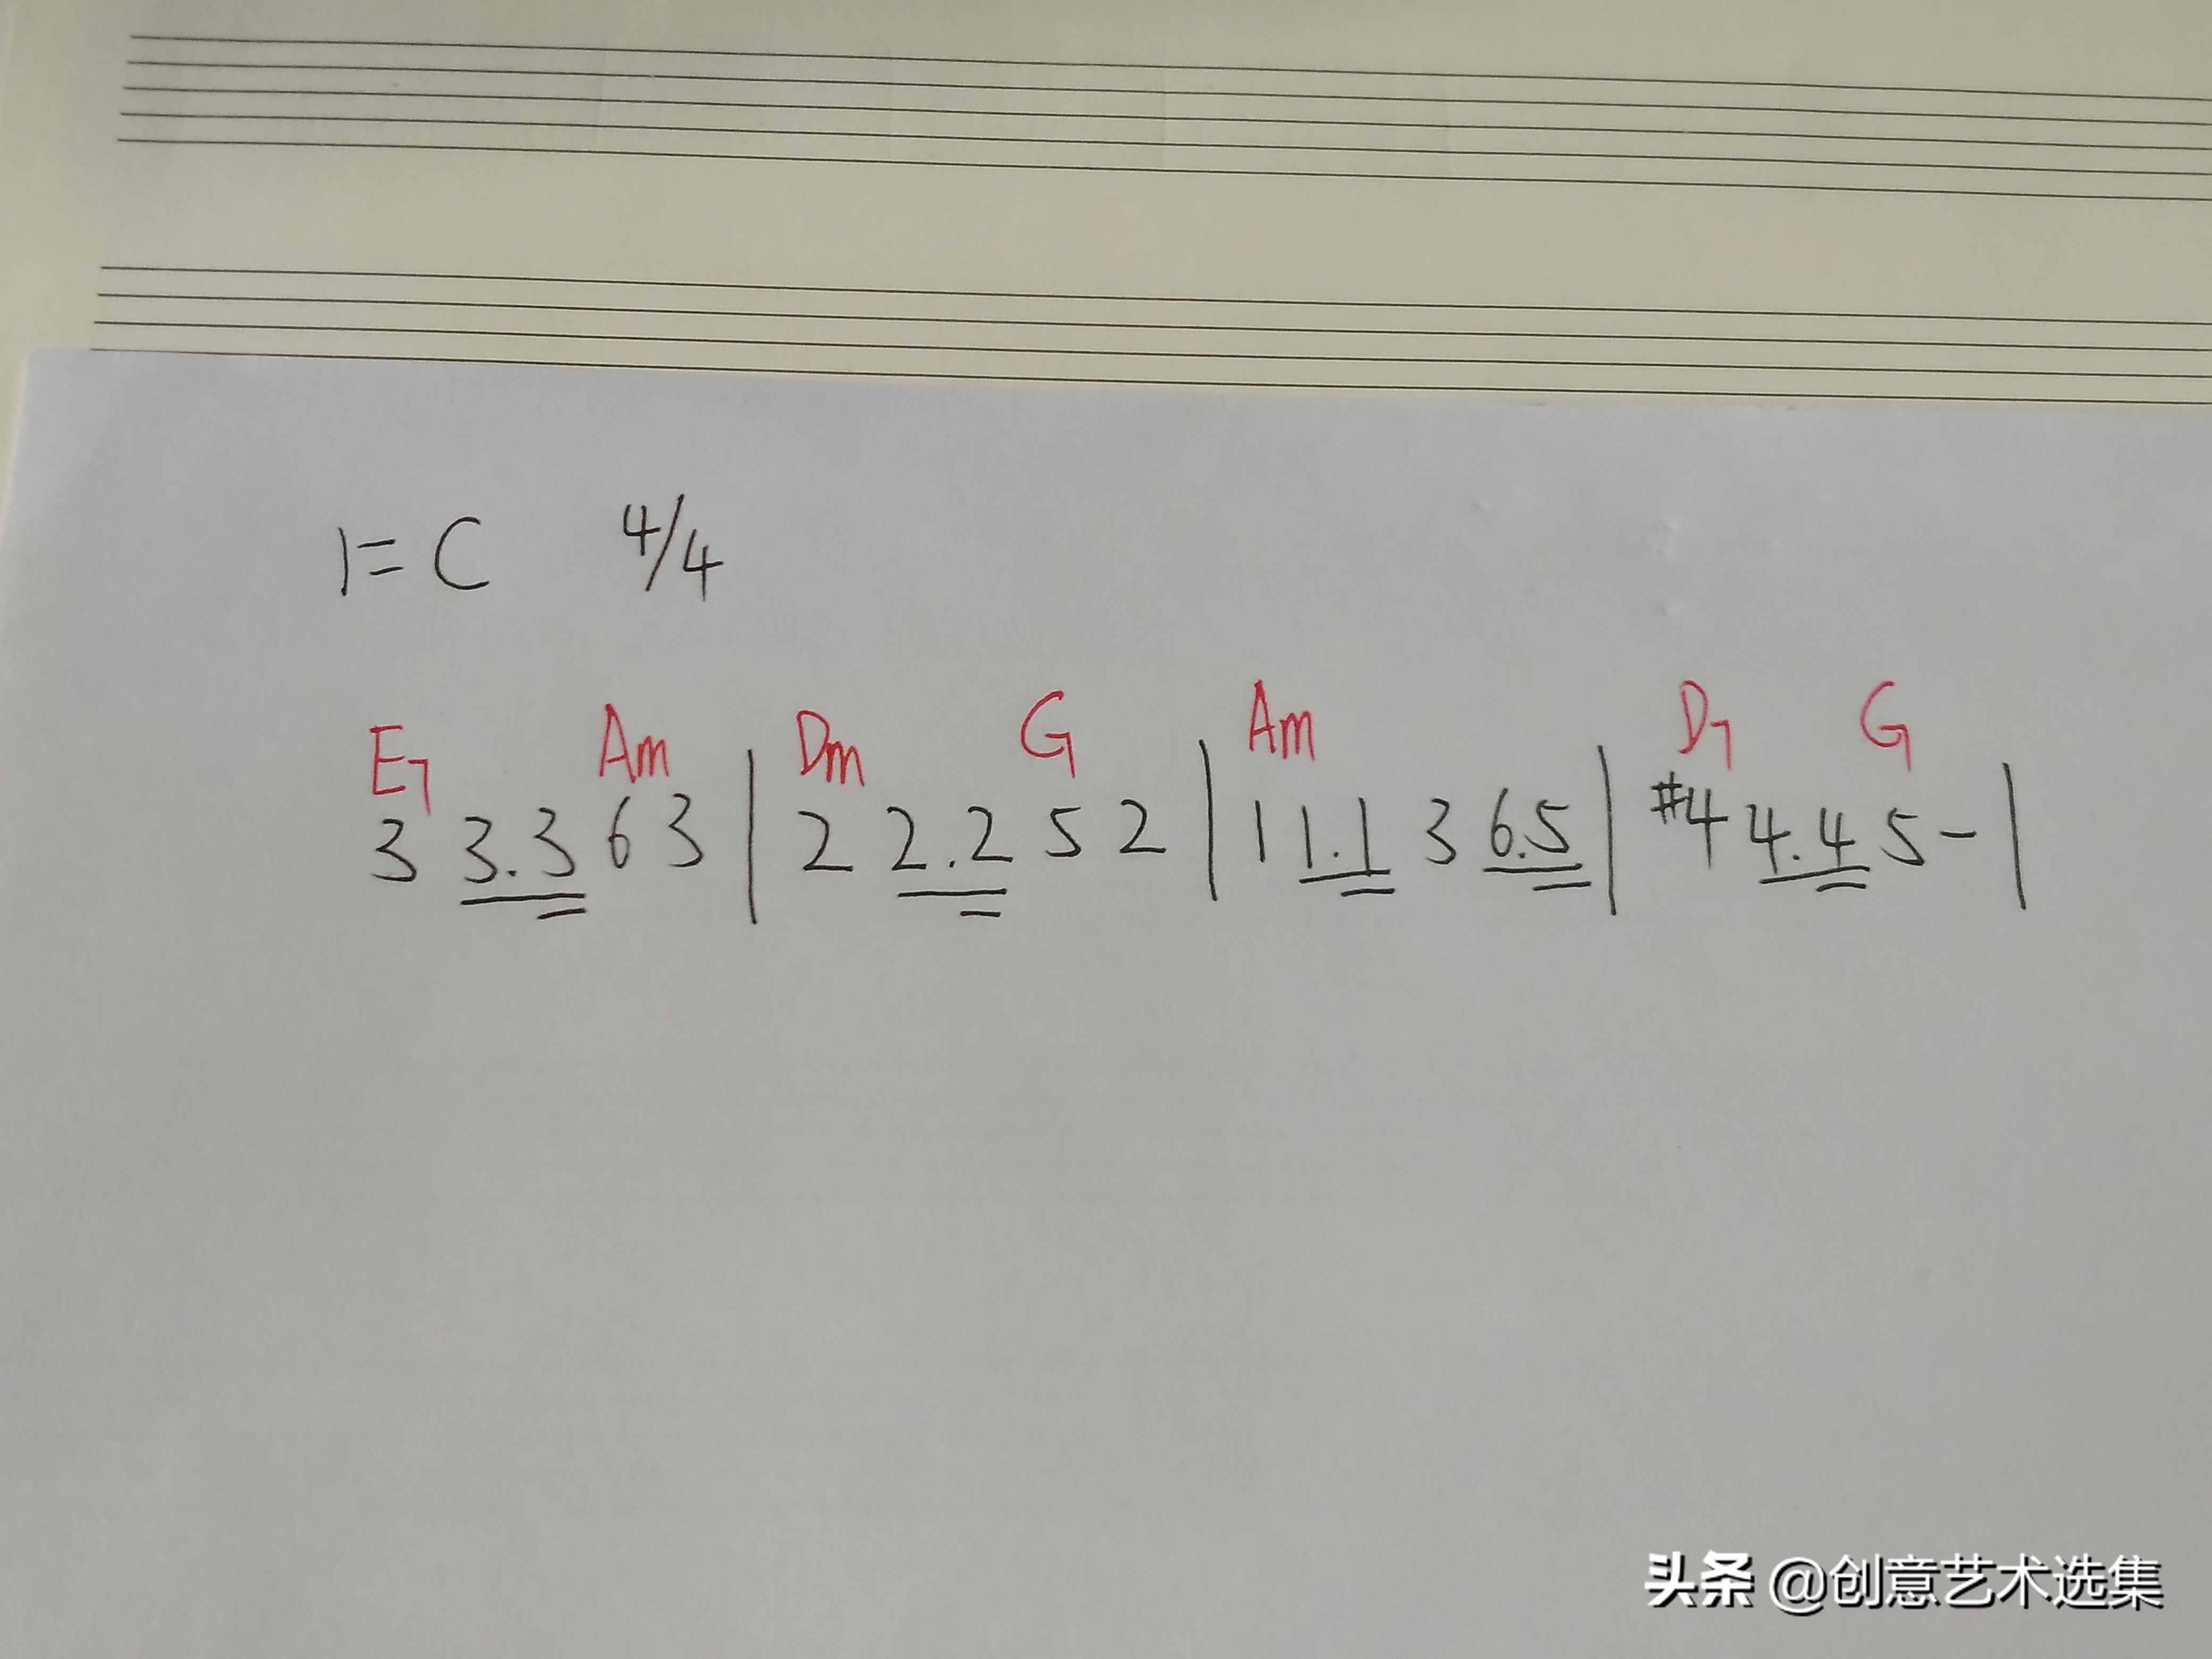 1=C 4/4
E7 Am Dm G Am D7 G
3 3.3 6 3 | 2 2.2 5 2 | 1 1.1 3 6.5 | #4 4.4 5 - |
头条 @创意艺术选集